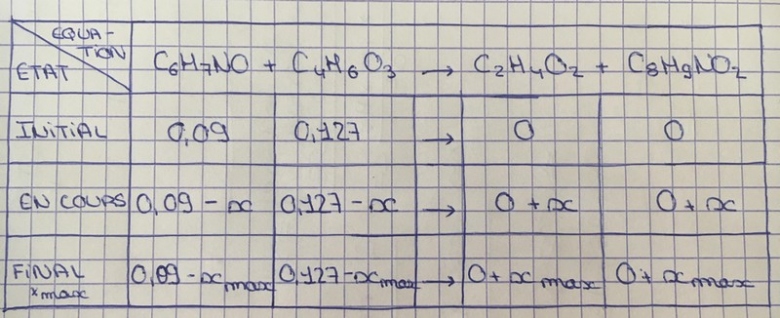 EQUA-
TION
ETAT
C6H7NO + C4H6O3 → C2H4O2 + C8H9NO2
INITIAL 0,09 0,127 → 0 0
EN COURS 0,09 - x 0,127 - x → 0 + x 0 + x
FINAL 0,09 - xmax 0,127 - xmax → 0 + xmax 0 + xmax
xmax